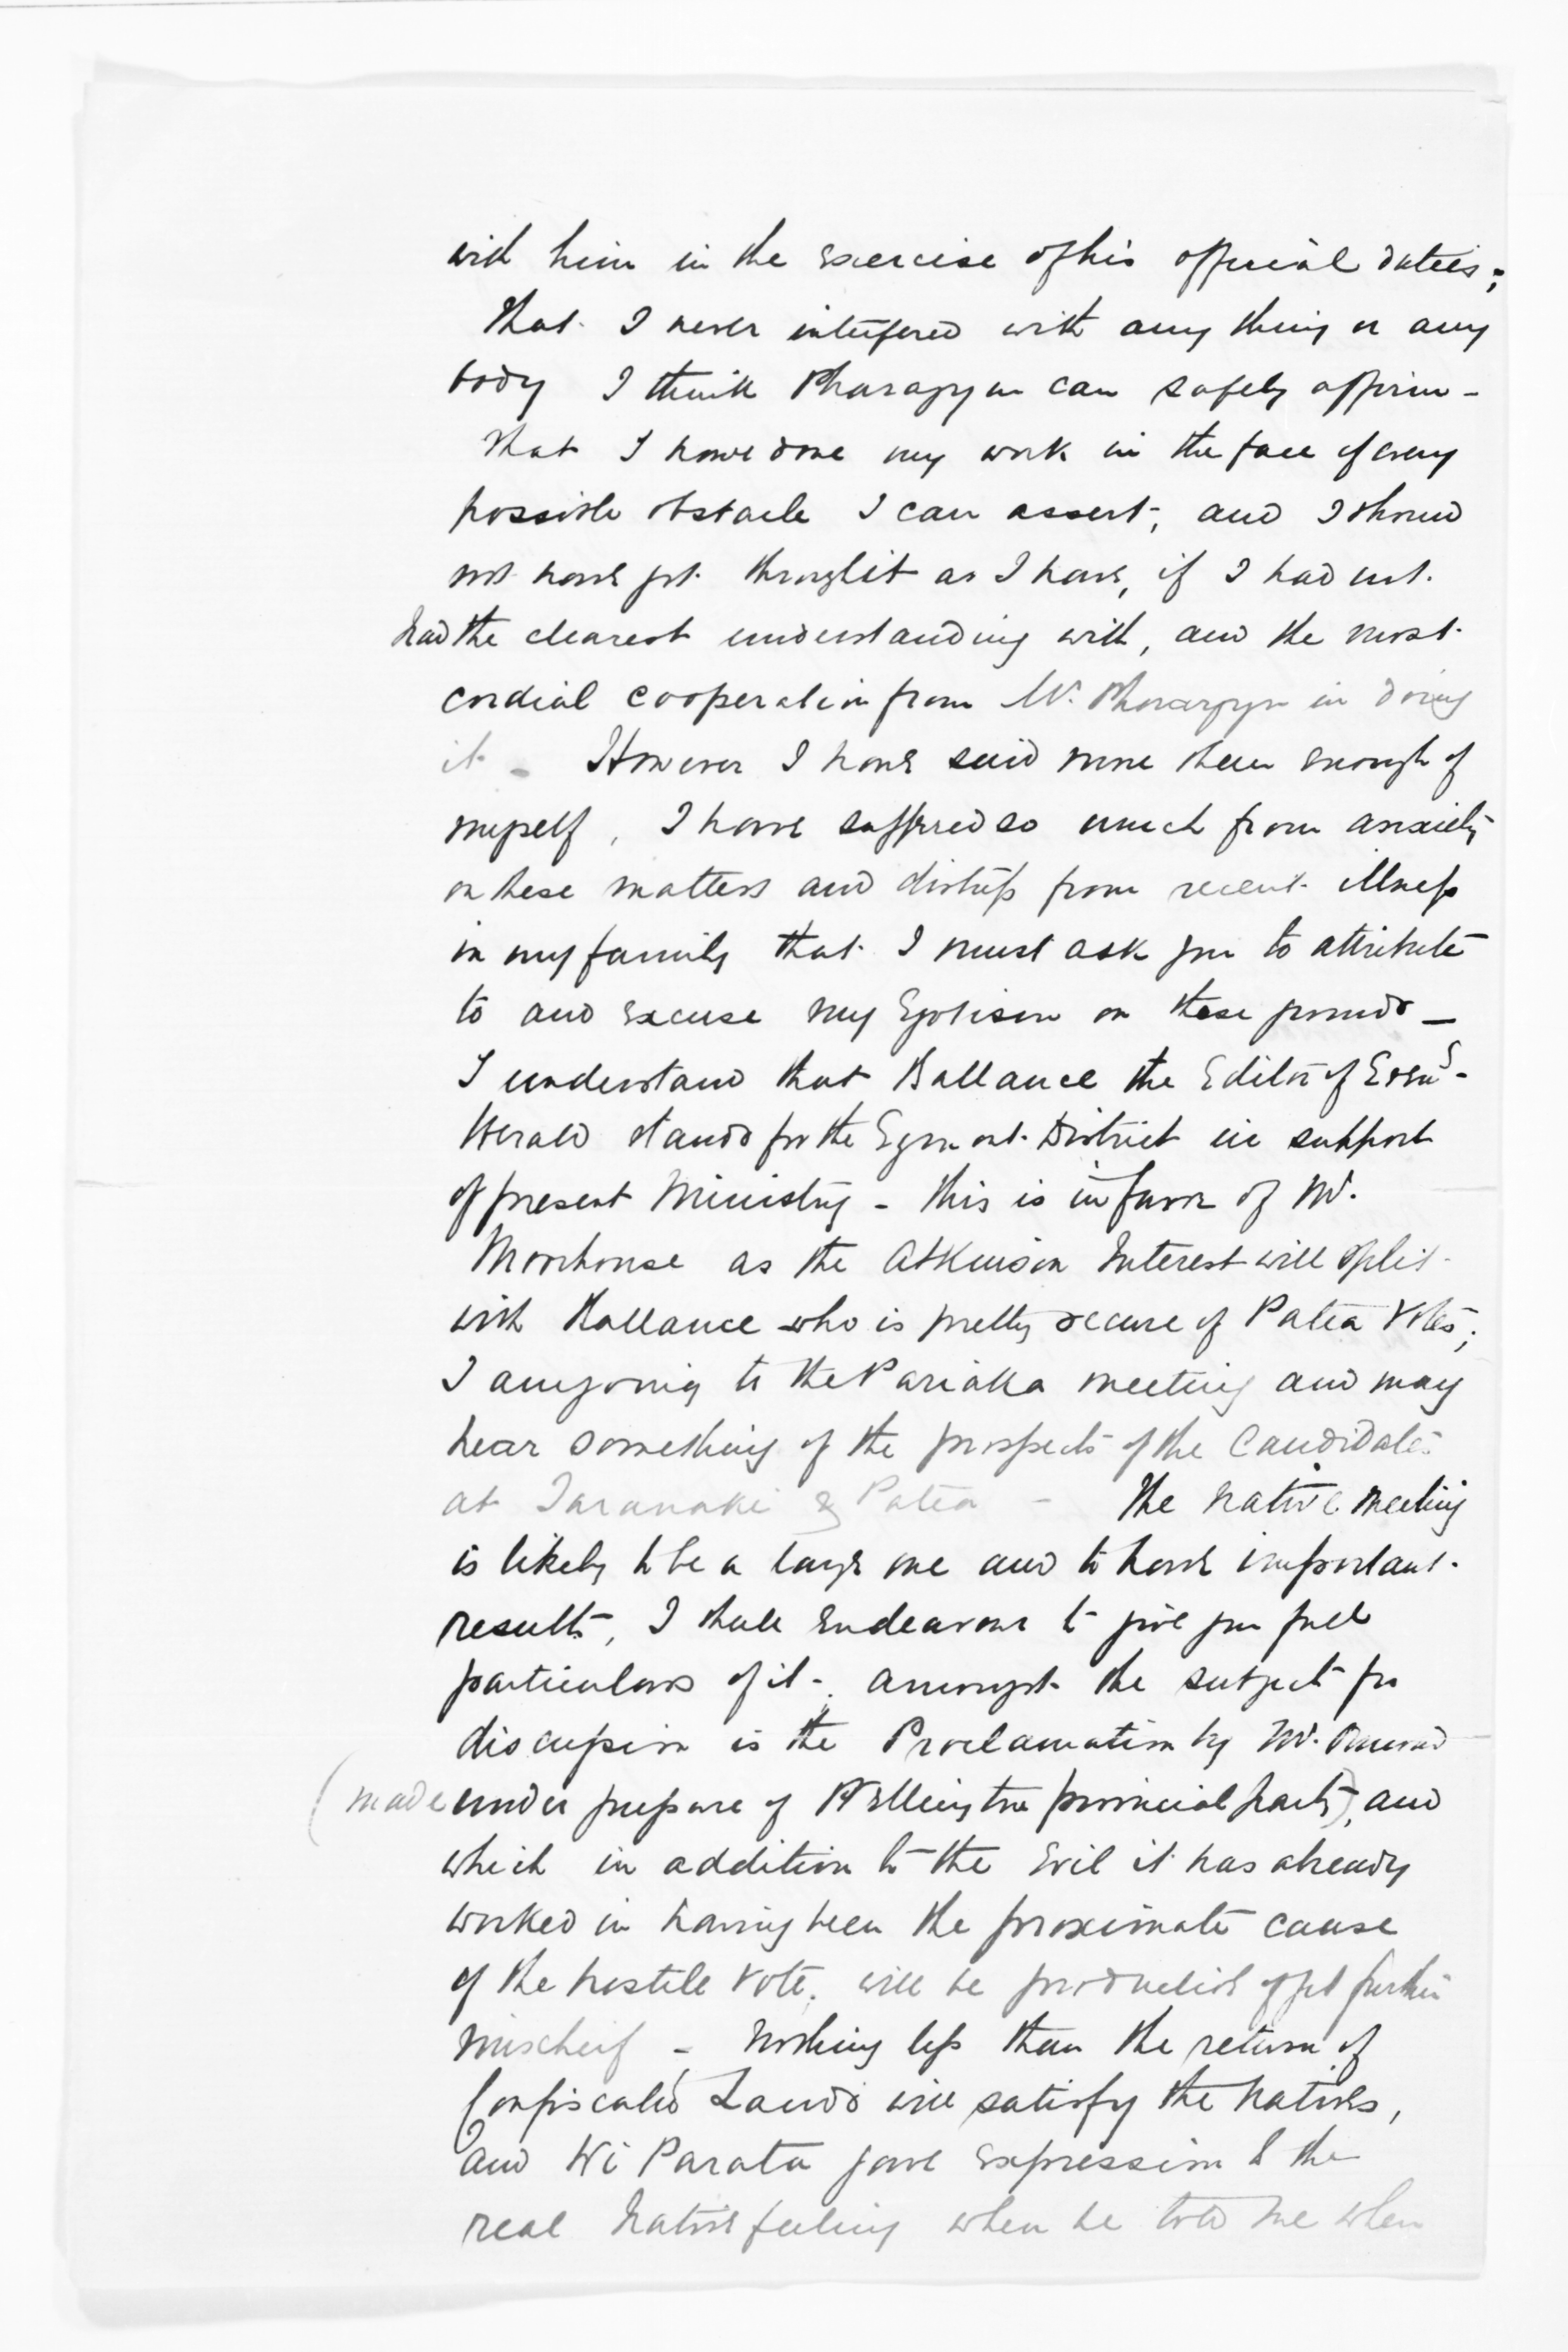 with him in the exercise of his official duties;
That I never interfered with any thing or any
body I think Pharazyn can safely affirm -
That I have done my work in the face of every
possible obstacle I can assert, and I should
not have got through it as I have, if I had not
had the clearest understanding with, and the most
cordial cooperation from Mr. Pharazyn in doing
it - However I have said more than enough of
myself, I have suffered so much from anxiety
on these matters and distress from recent illness
in my family that I must ask you to attribute
to and excuse my Egotism on these grounds -
I understand that Ballance the Editor of Eveng.
Herald stands for the Egmont District in support
of present Ministry - this is in favor of Mr.
Moorhouse as the Atkinson Interest will split
with Ballance who is pretty secure of Patea Votes;
I am going to the Pariaka meeting and may
hear something of the prospects of the Candidates
at Taranaki & Patea - The native meeting
is likely to be a large one and to have important
results, I shall Endeavour to give you full
particulars of it. Amongst the subjects for
discussion is the Proclamation by Mr.
(made under pressure of Wellington provincial party), and
which in addition to the Evil it has already
worked in having been the proximate cause
of the hostile vote, will be productive of yet further
mischeif - Nothing less than the return of
Confiscated Lands will satisfy the natives,
and Wi Parata gave expression to the
real Native feeling when he told me when